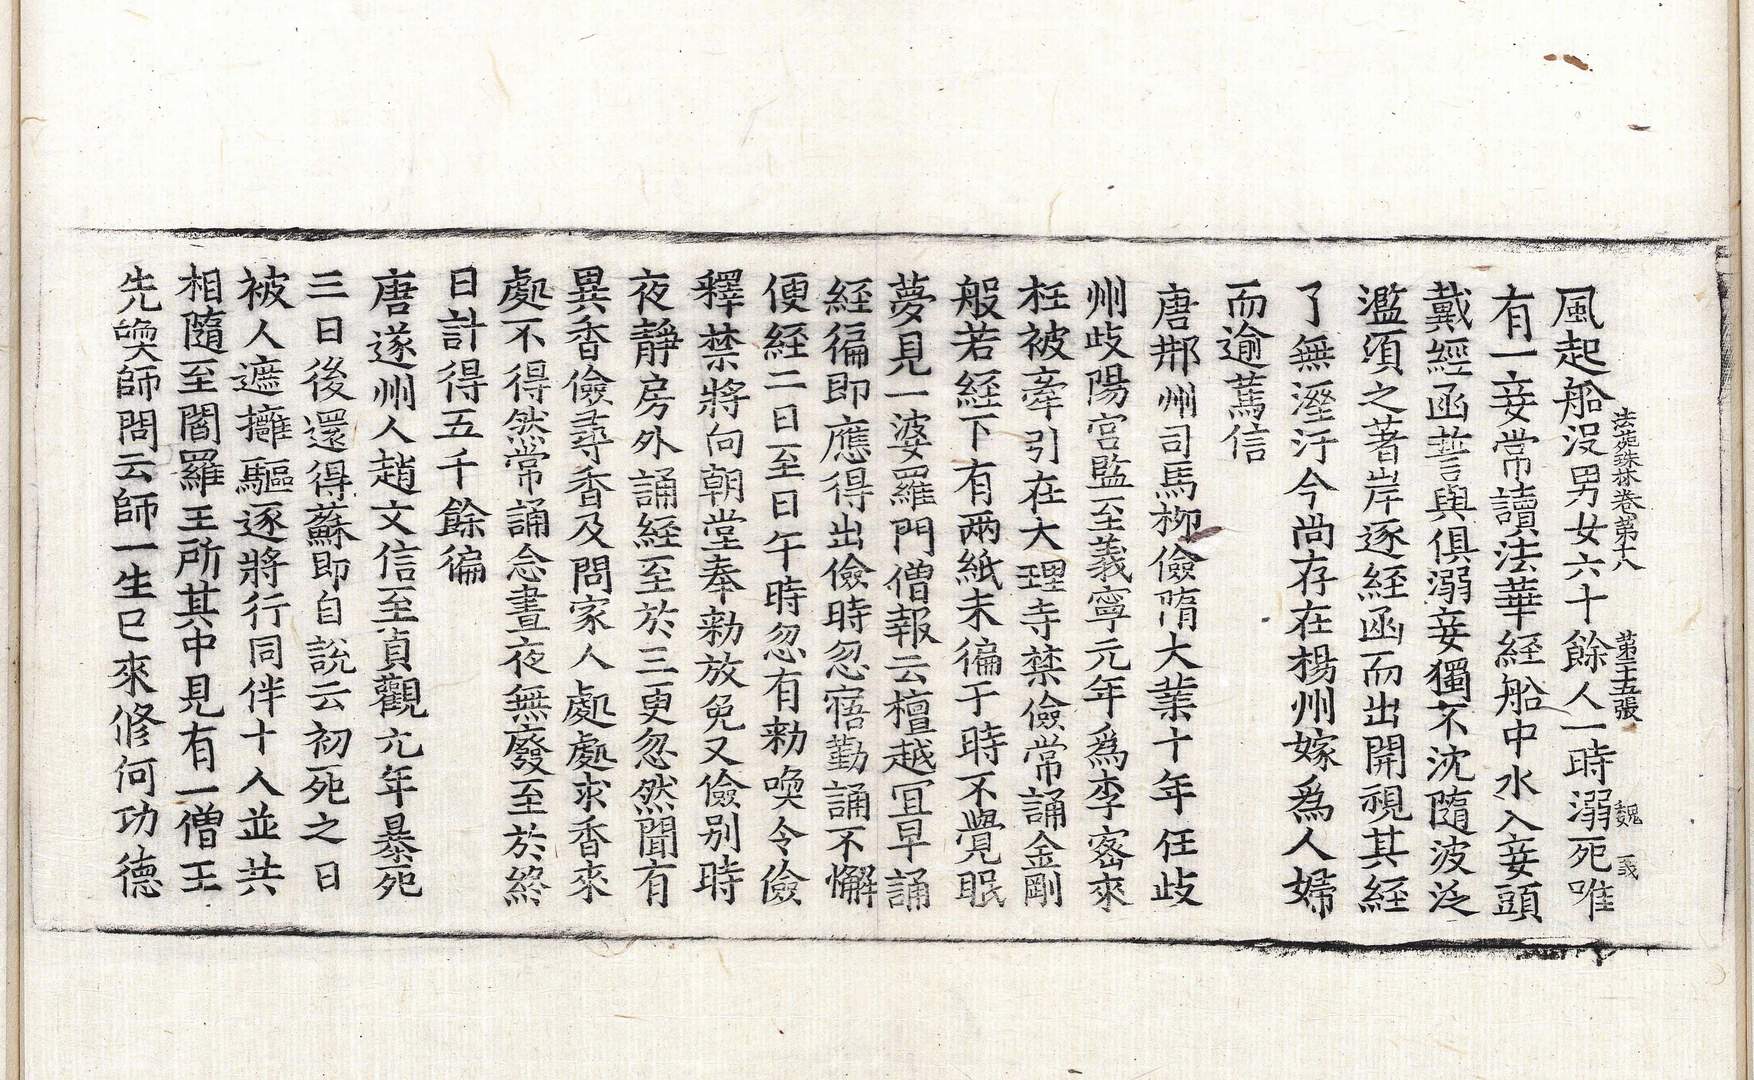 風起船没男女六十餘人一時溺死唯
法苑珠林卷第十八 第二十五張 魏 義
有一妾常讀法華經船中水入妾頭
戴經函誓與俱溺妾獨不沈隨波泛
濫須之著岸逐經函而出開視其經
了無溼汙今尚存在楊州嫁爲人婦
而逾篤信
唐邢州司馬栁儉隋大業十年任歧
州歧陽宫監至義寧元年爲李宻來
枉被牽引在大理寺禁儉常誦金剛
般若經下有兩紙未徧于時不覺眠
夢見一婆羅門僧報云檀越冝早誦
經徧即應得出儉時忽寤勤誦不懈
便經二日至日午時忽有勑喚令儉
釋禁將向朝堂奉勑放免又儉别時
夜靜房外誦經至於三更忽然聞有
異香儉尋香及問家人處處求香來
處不得然常誦念晝夜無廢至於終
日計得五千餘徧
唐遂州人趙文信至貞觀元年暴死
三日後還得蘇即自說云初死之日
被人遮擁驅逐將行同伴十人並共
相隨至閻羅王所其中見有一僧王
先喚師問云師一生已來修何功德